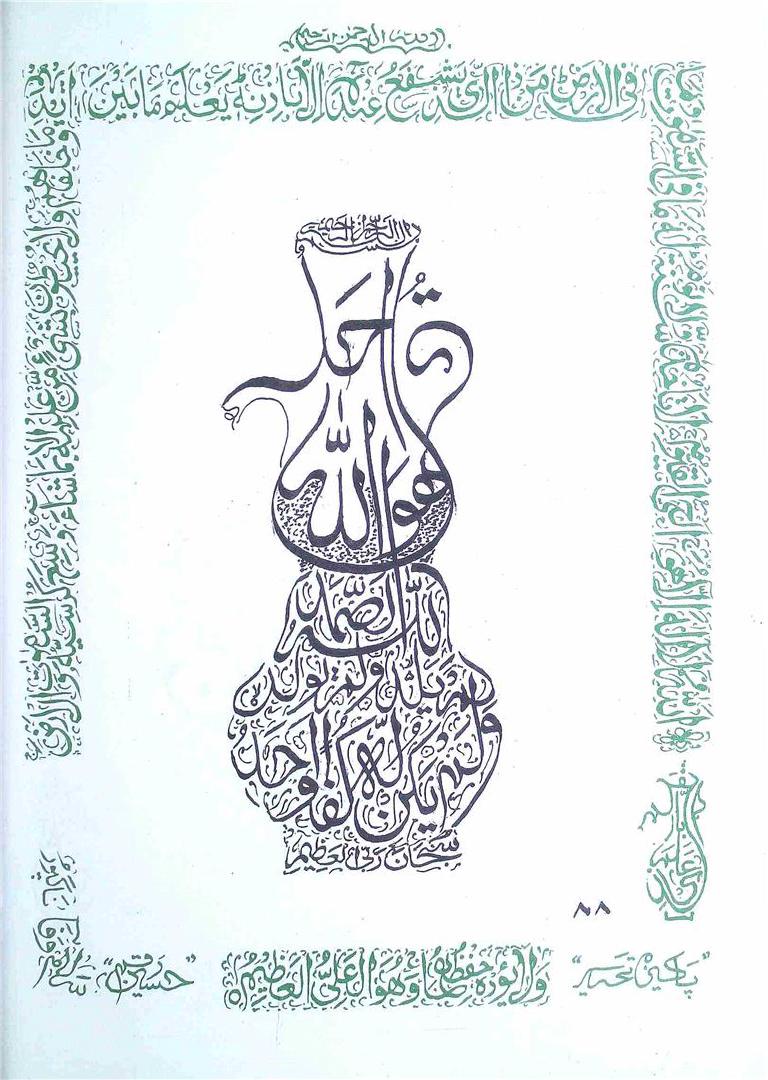 بسم الله الرحمن الرحيم
الله لا اله الا هو الحي القيوم لا تاخذه سنة ولا نوم له ما في السموت وما
في الارض من ذا الذي يشفع عنده الا باذنه يعلم ما بين ايديهم
وما خلفهم ولا يحيطون بشيء من علمه الا بما شاء وسع كرسيه السموت والارض
ولا يؤده حفظهما وهو العلي العظيم
بسم الله الرحمن الرحيم
قل هو الله احد
الله الصمد
لم يلد ولم يولد
ولم يكن له كفوا احد
سبحان ربي العظيم
۸۸
تحریر"
"حسین رقم"